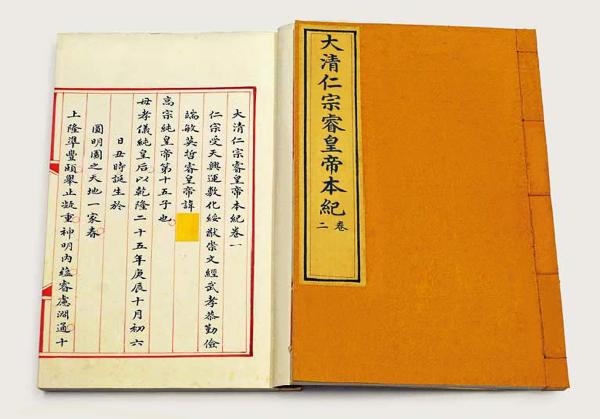 大清仁宗睿皇帝本紀
卷二
大清仁宗睿皇帝本紀卷一
仁宗受天興運敷化綏猷崇文經武孝恭勤儉
端敏英哲睿皇帝諱
高宗純皇帝第十五子也
母孝儀純皇后以乾隆二十五年庚辰十月初六
日丑時誕生於
圓明園之天地一家春
上隆準豐頤舉止凝重神明內蘊睿慮淵通十